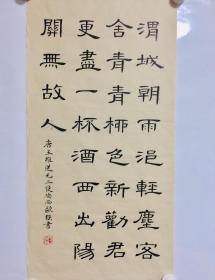 渭城朝雨浥輕塵客
舍青青柳色新勸君
更盡一杯酒西出陽
關無故人
唐王維送元二使安西書